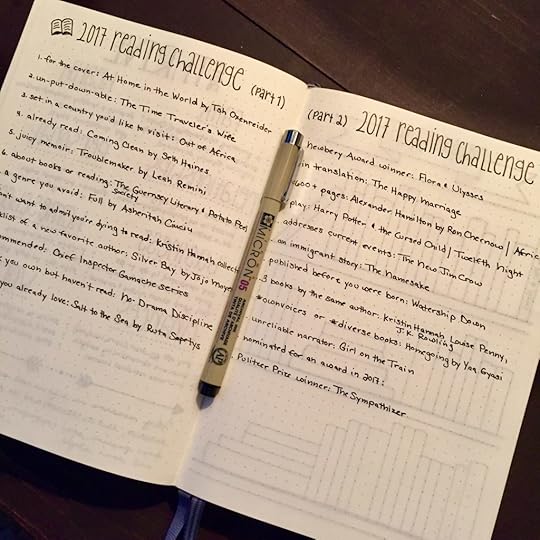 2017 reading challenge (part 1)
1. for the cover: At Home in the World by Tsh Oxenreider
2. un-put-down-able: The Time Traveler's Wife
3. set in a country you'd like to visit: Out of Africa
4. already read: Coming Clean by Seth Haines
5. juicy memoir: Troublemaker by Leah Remini
6. about books or reading: The Guernsey Literary & Potato Peel
Society
a genre you avoid: Full by Asheritah Ciuciu
don't want to admit you're dying to read: Kristin Hannah
backlist of a new favorite author: Silver Bay by Jojo
recommended: Chief Inspector Gamache series
you own but haven't read: No-Drama Discipline
you already love: Salt to the Sea by Ruta Sepetys
(part 2) 2017 reading challenge
Newbery Award winner: Flora & Ulysses
in translation: The Happy Marriage
600+ pages: Alexander Hamilton by Ron Chernow
play: Harry Potter & the Cursed Child / Twelfth Night
addresses current events: The New Jim Crow
an immigrant story: The Namesake
published before you were born: Watership Down
3 books by the same author: Kristin Hannah, Louise Penny,
J.K. Rowling
#ownvoices or #diverse books: Homegoing by Yaa Gyasi
unreliable narrator: Girl on the Train
nominated for an award in 2017:
Pulitzer Prize winner: The Sympathizer
MICRON 05